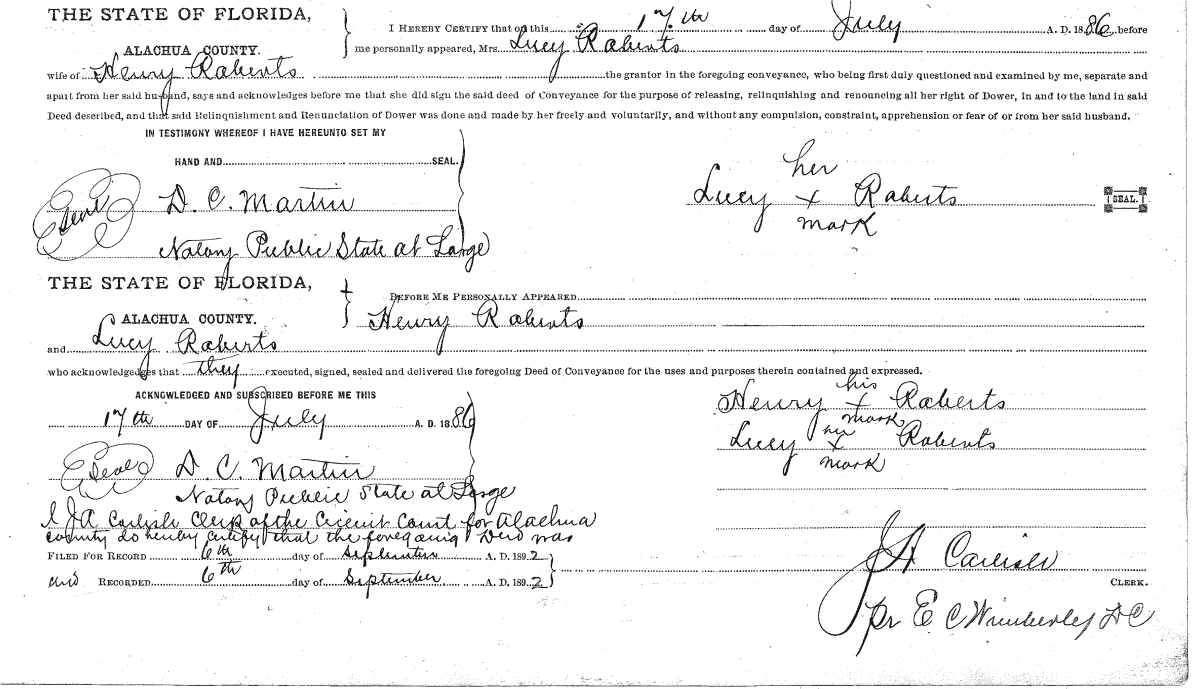 THE STATE OF FLORIDA,
ALACHUA COUNTY.
I HEREBY CERTIFY that on this 17th day of July A. D. 1886 before
me personally appeared, Mrs. Lucy Roberts
wife of Henry Roberts the grantor in the foregoing conveyance, who being first duly questioned and examined by me, separate and
apart from her said husband, says and acknowledges before me that she did sign the said deed of Conveyance for the purpose of releasing, relinquishing and renouncing all her right of Dower, in and to the land in said
Deed described, and that said Relinquishment and Renunciation of Dower was done and made by her freely and voluntarily, and without any compulsion, constraint, apprehension or fear of or from her said husband.
IN TESTIMONY WHEREOF I HAVE HEREUNTO SET MY
HAND AND SEAL.
Seal D. C. Martin
Notary Public State at Large
her
Lucy x Roberts SEAL.
mark
THE STATE OF FLORIDA,
ALACHUA COUNTY.
BEFORE ME PERSONALLY APPEARED
Henry Roberts
and Lucy Roberts
who acknowledges that they executed, signed, sealed and delivered the foregoing Deed of Conveyance for the uses and purposes therein contained and expressed.
ACKNOWLEDGED AND SUBSCRIBED BEFORE ME THIS
17th DAY OF July A. D. 1886
Seal D. C. Martin
Notary Public State at Large
his
Henry x Roberts
mark
her
Lucy x Roberts
mark
I JA Carlisle Clerk of the Circuit Court for Alachua
County do hereby certify that the foregoing Deed was
FILED FOR RECORD 6th day of September A. D. 1892
and RECORDED 6th day of September A. D. 1892
JA Carlisle
CLERK.
pr E C Wimberley DC